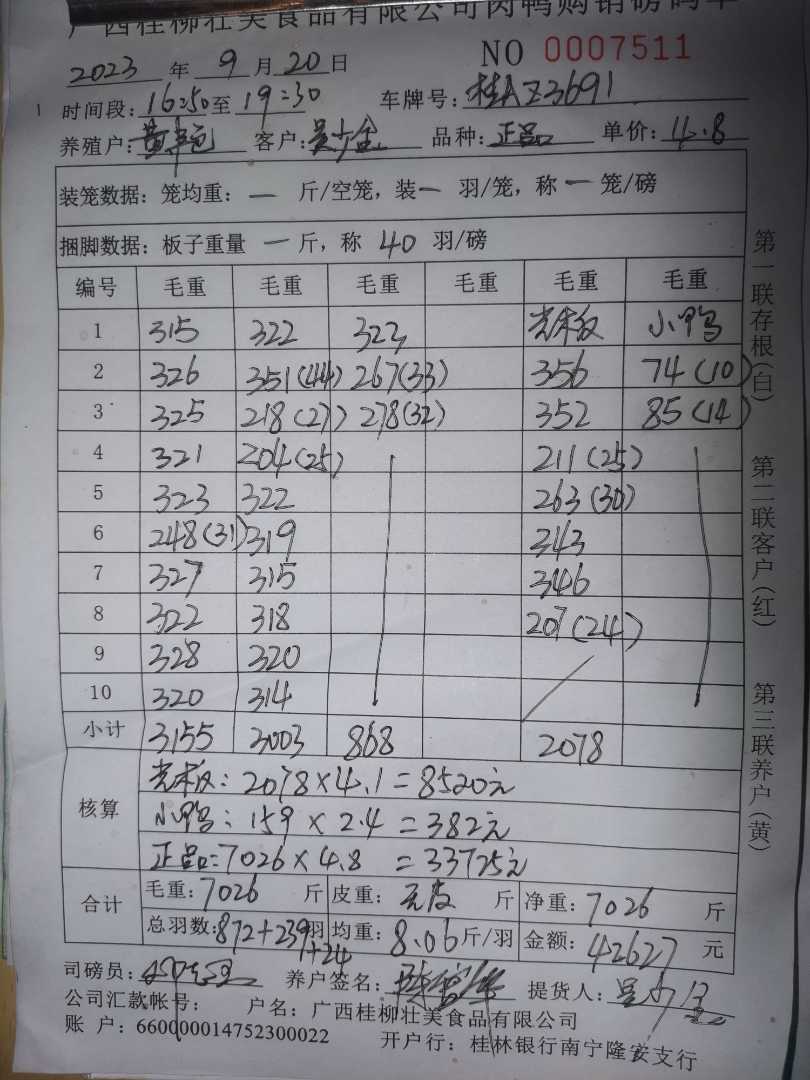 广西桂柳壮美食品有限公司肉鸭购销磅码单
NO 0007511
2023 年 9 月 20 日
时间段: 16:50 至 19:30 车牌号: 桂AZ3691
养殖户: 黄 客户: 吴少金 品种: 正品 单价: 4.8
装笼数据: 笼均重: 一 斤/空笼, 装 一 羽/笼, 称 一 笼/磅
捆脚数据: 板子重量 一 斤, 称 40 羽/磅
编号 毛重 毛重 毛重 毛重 毛重 毛重
1 315 322 323 光木板 小鸭
2 326 351(44) 267(33) 356 74(10)
3 325 218(27) 278(32) 352 85(14)
4 321 204(25) 211(25)
5 323 322 263(30)
6 248(31) 319 343
7 327 315 346
8 322 318 207(24)
9 328 320
10 320 314
小计 3155 3003 868 2078
核算
光木板: 2078×4.1=8520元
小鸭: 159×2.4=382元
正品:7026×4.8=33725元
合计
毛重: 7026 斤 皮重: 无皮 斤 净重: 7026 斤
总羽数: 872+239+24 羽 均重: 8.06 斤/羽 金额: 42627 元
司磅员: 养户签名: 提货人:
公司汇款帐号: 户名: 广西桂柳壮美食品有限公司
账 户: 660000014752300022 开户行: 桂林银行南宁隆安支行
第一联存根(白)
第二联客户(红)
第三联养户(黄)